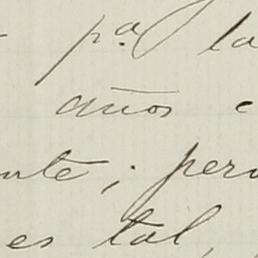 pª la
años
nte; pero
es tal,